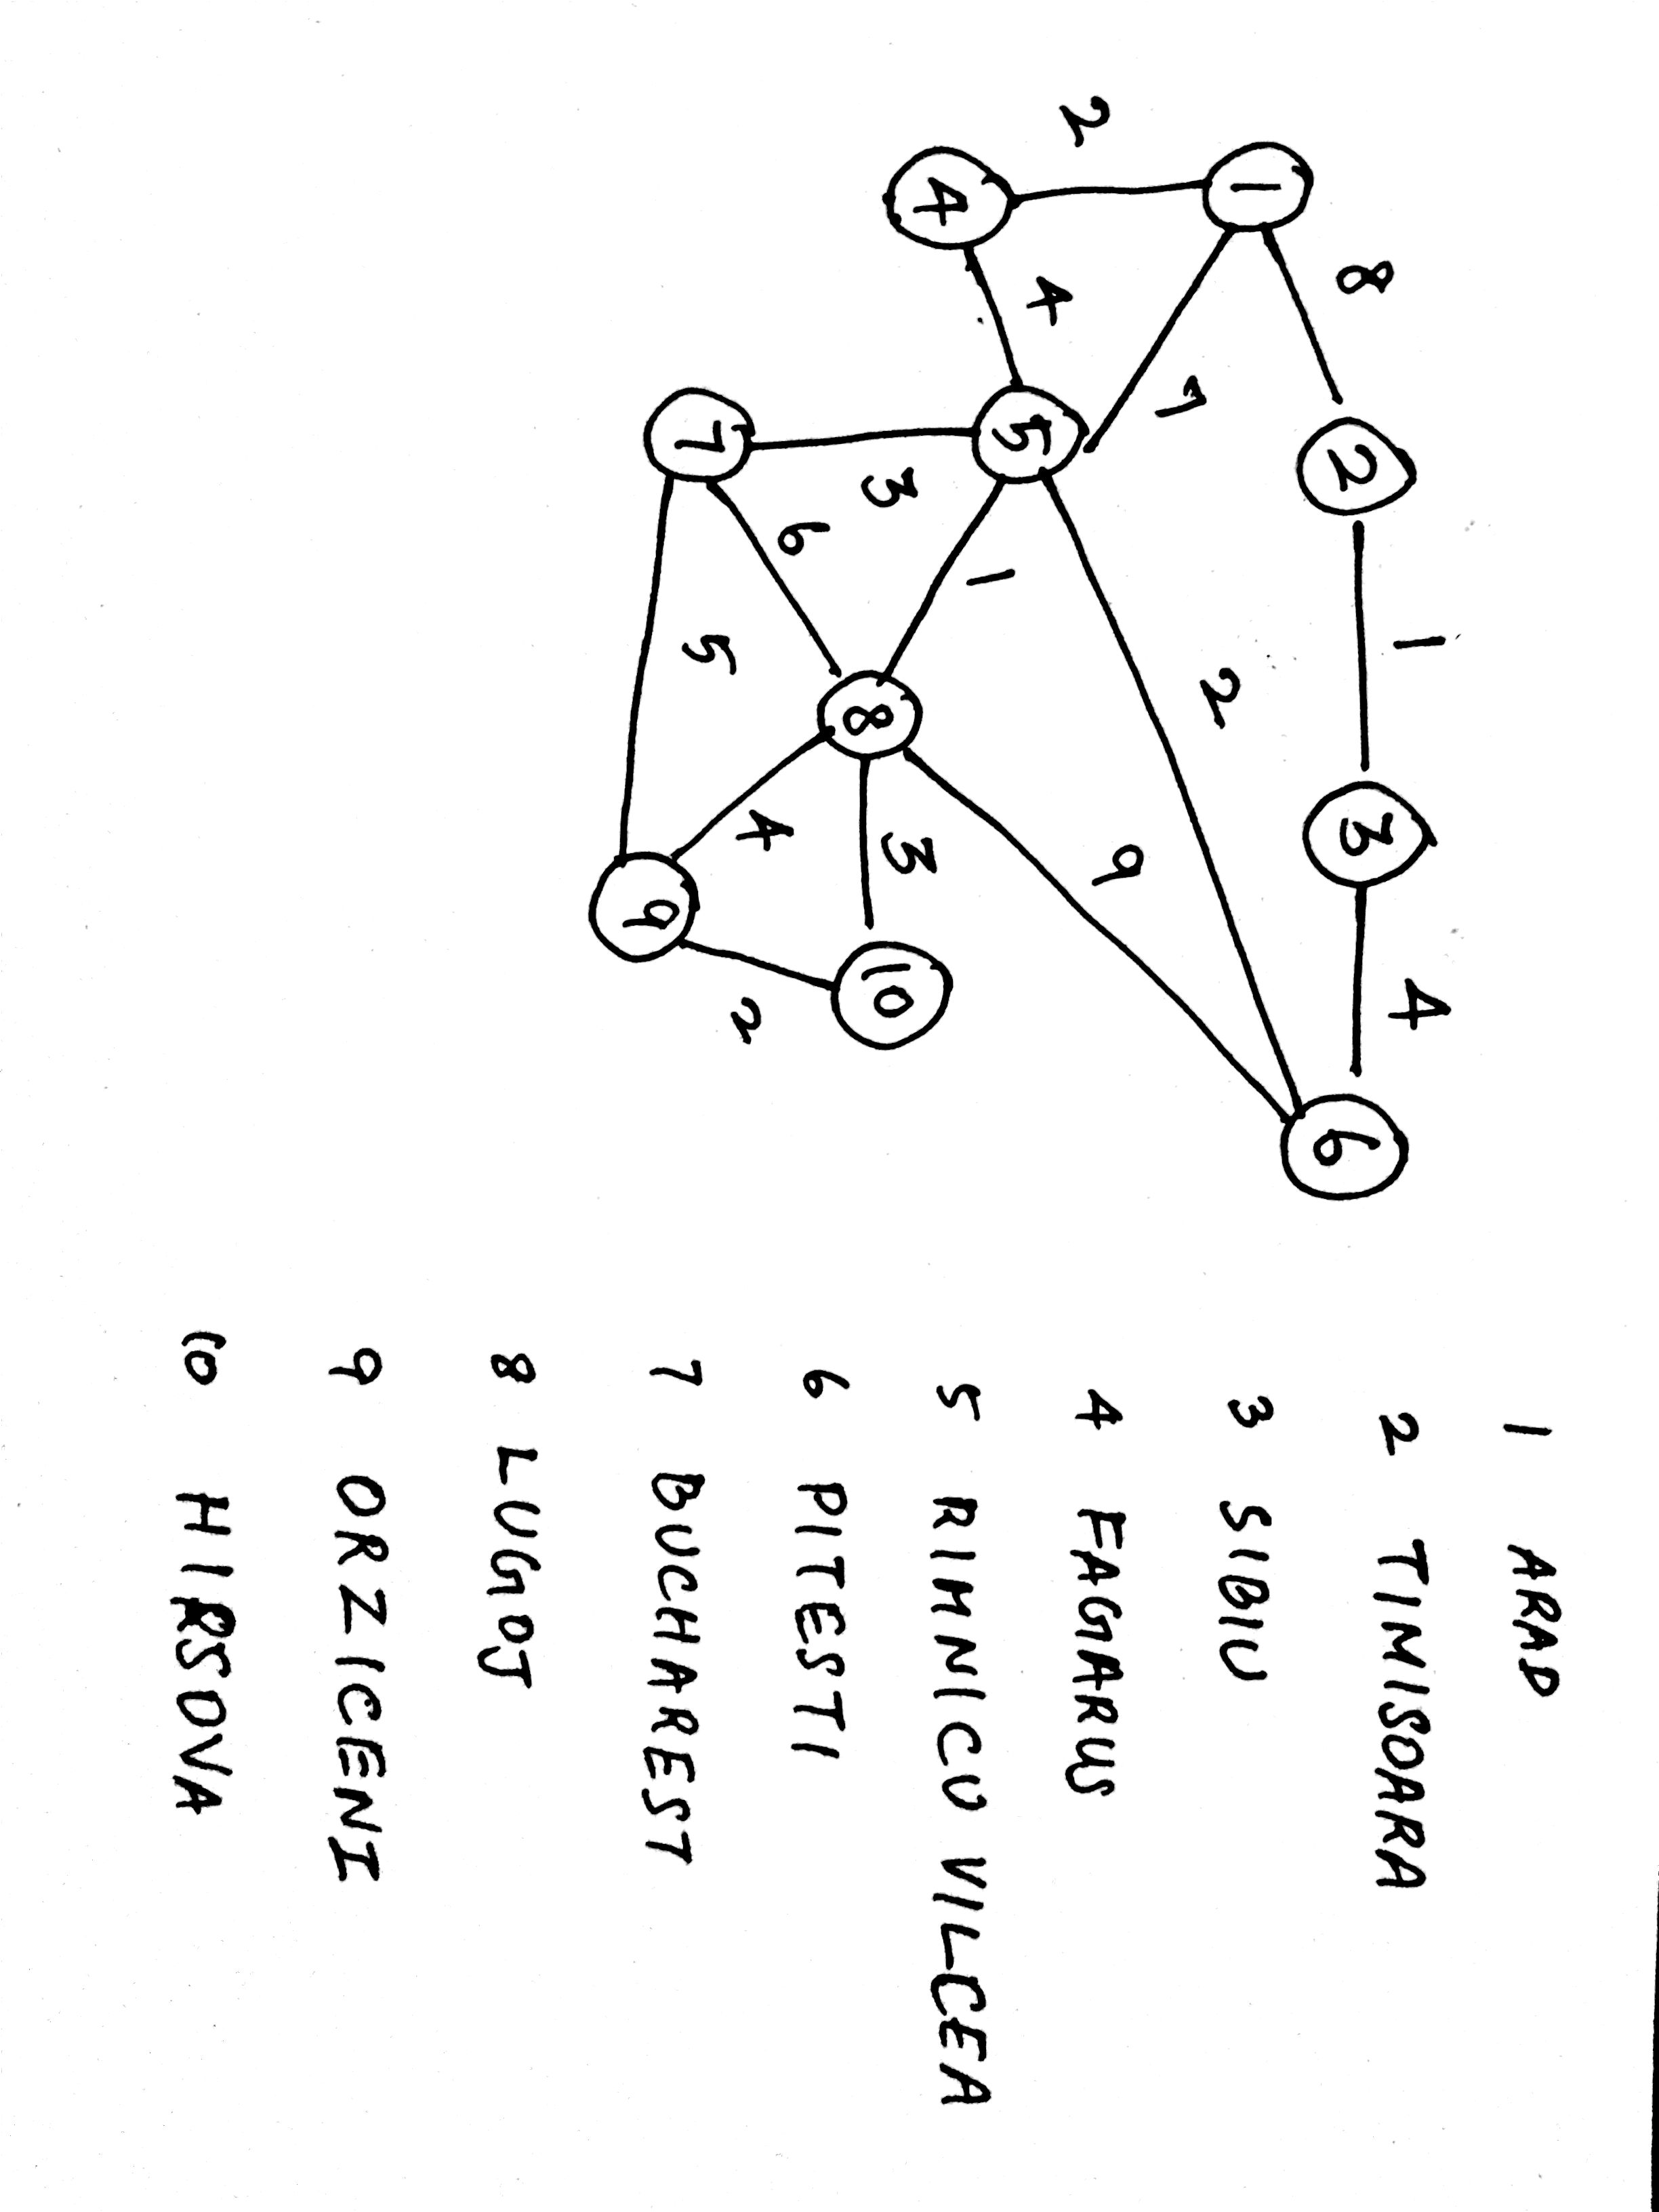 8 1 4
2 3 6
1
7 2 9
2 4 5 1
4
3 8 3 10
6 4 2
7 5 9
1 ARAD
2 TIMISOARA
3 SIBIU
4 FAGARUS
5 RIMNICU VILCEA
6 PITESTI
7 BUCHAREST
8 LUGOJ
9 ORZICENI
10 HIRSOVA